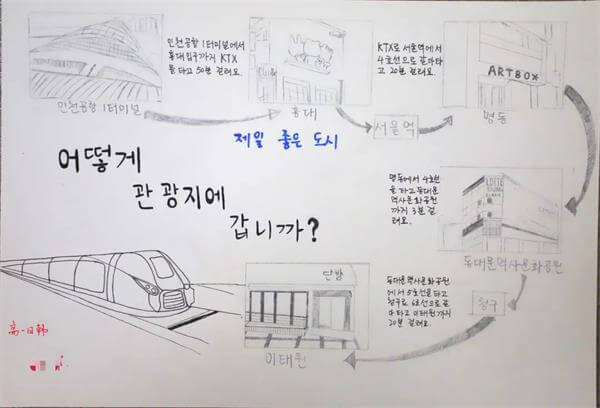 인천공항 1터미널에서
홍대입구까지 KTX
를 타고 50분 걸려요.
인천공항 1터미널
홍대
KTX로 서울역에서
4호선으로 갈아타
고 20분 걸려요.
서울역
ARTBOX
명동
제일 좋은 도시
어떻게
관광지에
갑니까?
명동에서 4호선
을 타고 동대문
역사문화공원
까지 3분 걸
려요.
LOTTE
동대문역사문화공원
동대문역사문화공원
에서 5호선을 타고
청구로 6호선으로 갈
아타고 이태원까지
20분 걸려요.
청구
단밤
이태원
高一日韩